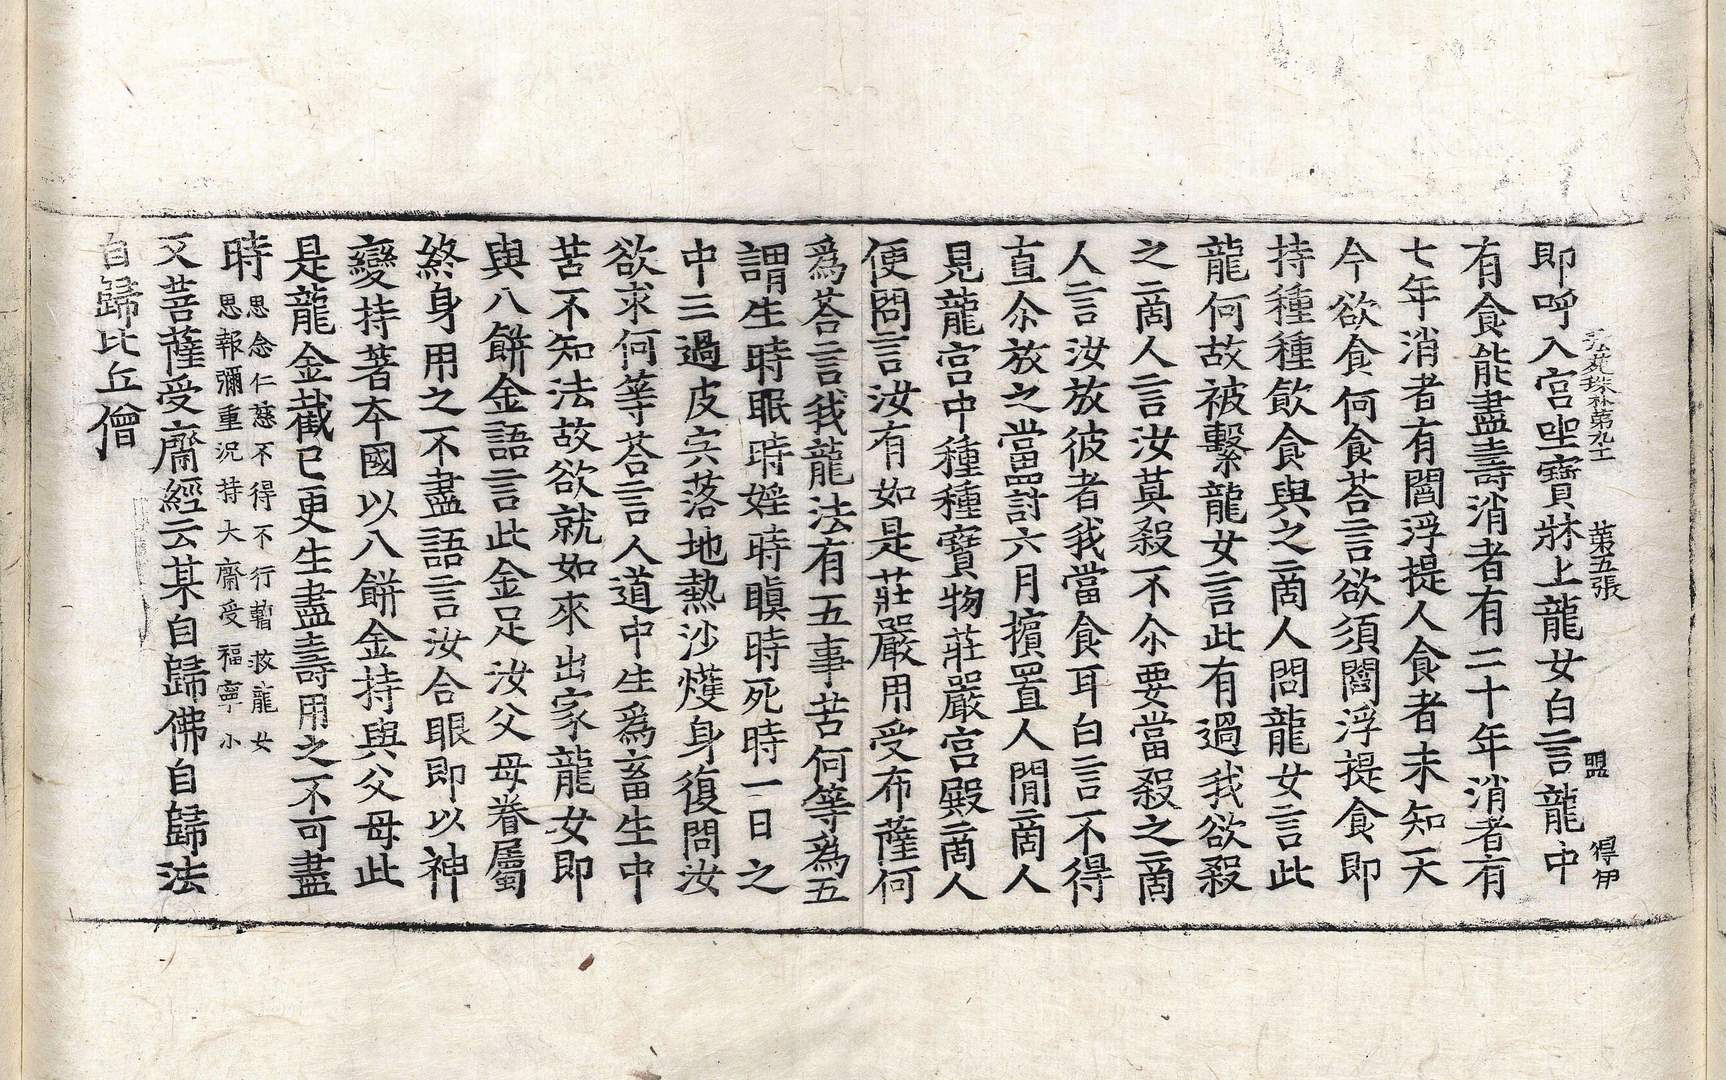 即呼入宫坐寶牀上龍女白言龍中
法苑珠林第九十一 第五張 盟 得伊
有食能盡壽消者有二十年消者有
七年消者有閻浮提人食者未知天
今欲食何食荅言欲須閻浮提食即
持種種飲食與之啇人問龍女言此
龍何故被繫龍女言此有過我欲殺
之啇人言汝莫殺不尒要當殺之啇
人言汝放彼者我當食耳白言不得
直尒放之當罰六月擯置人閒啇人
見龍宫中種種寶物莊嚴宫殿啇人
便問言汝有如是莊嚴用受布薩何
爲荅言我龍法有五事苦何等爲五
謂生時眠時婬時瞋時死時一日之
中三過皮宍落地熱沙爆身復問汝
欲求何等荅言人道中生爲畜生中
苦不知法故欲就如來出家龍女即
與八餅金語言此金足汝父母眷屬
終身用之不盡語言汝合眼即以神
變持著夲國以八餅金持與父母此
是龍金截已更生盡壽用之不可盡
時思念仁慈不得不行暫救龍女
恩報彌重況持大齋受福寧小
又菩薩受齋經云某自歸佛自歸法
自歸比丘僧